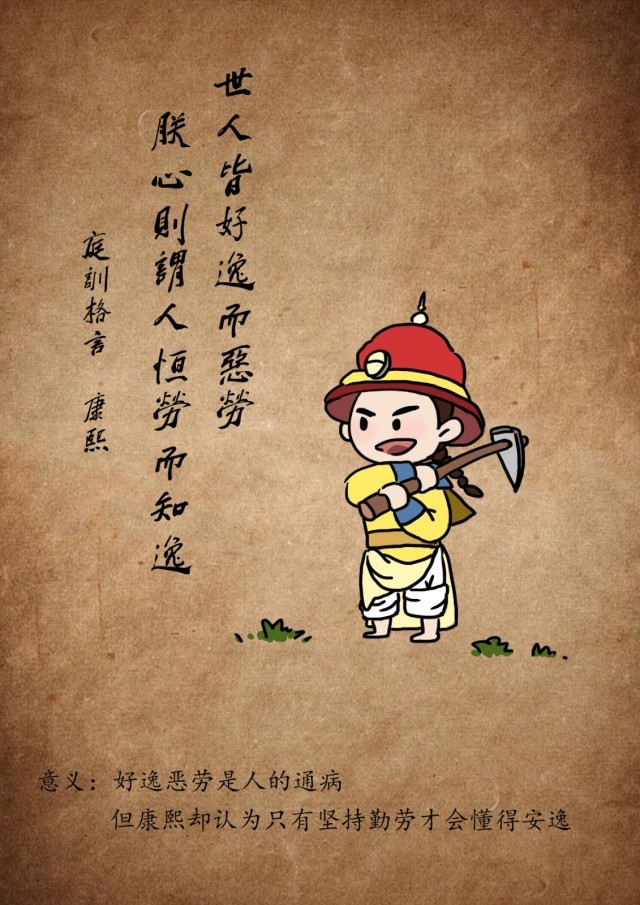 世人皆好逸而惡勞
朕心則謂人恒勞而知逸
庭訓格言 康熙
意义：好逸恶劳是人的通病
但康熙却认为只有坚持勤劳才会懂得安逸